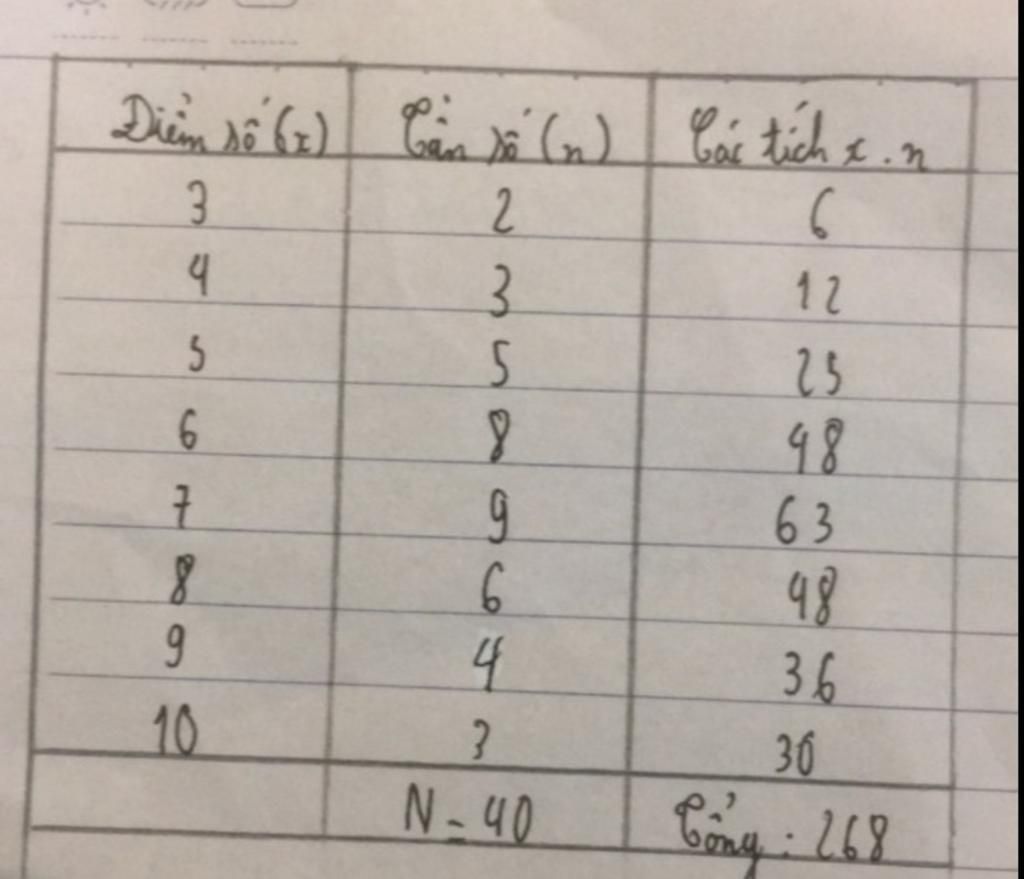 Điểm số (x) Tần số (n) Các tích x . n
3 2 6
4 3 12
5 5 25
6 8 48
7 9 63
8 6 48
9 4 36
10 3 30
N = 40 Tổng : 268